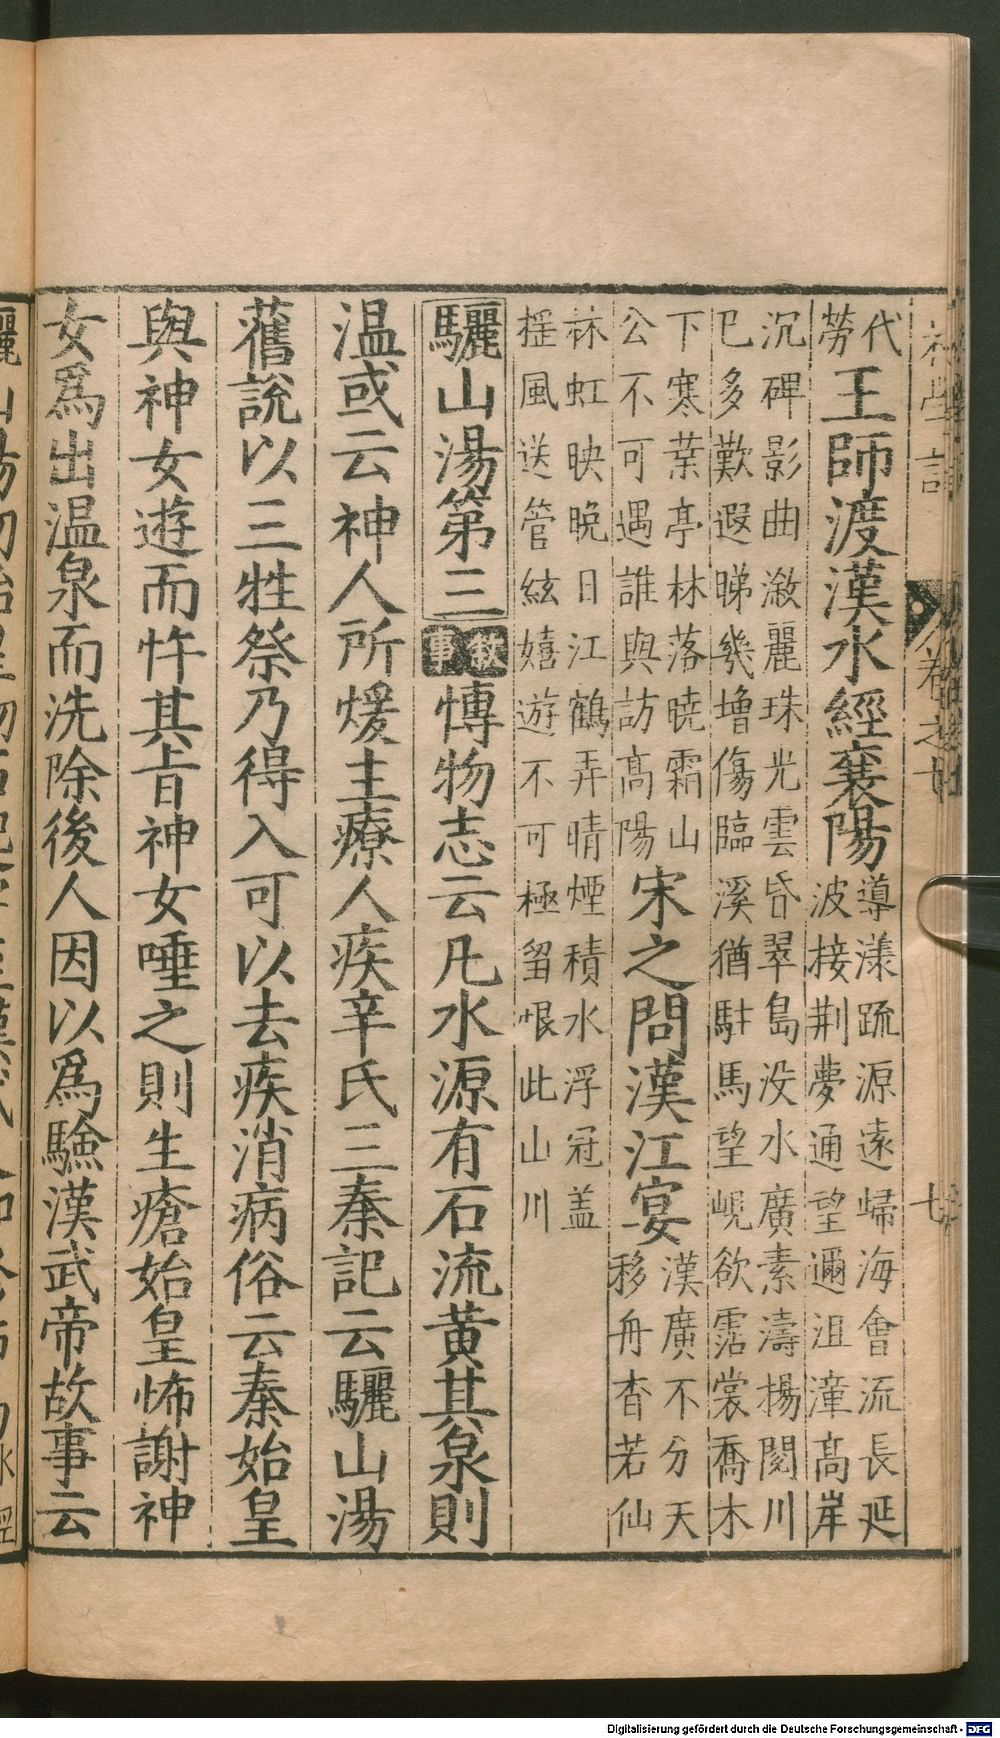 卷之七
七
代
勞
王師渡漢水經襄陽
導漾疏源遠歸海會流長延
波接荆夢通望邇沮漳髙岸
沉碑影曲潋麗珠光雲昏翠島没水廣素濤揚閱川
巳多歎遐睇幾增傷臨溪猶駐馬望峴欲霑裳喬木
下寒葉亭林落曉霜山
公不可遇誰與訪髙陽
宋之問漢江宴
漢廣不分天
移舟杳若仙
秋虹映晚日江鶴弄晴煙積水浮冠盖
揺風送管絃嬉遊不可極留恨此山川
驪山湯第三
敘事
博物志云凡水源有石流黄其泉則
温或云神人所煖主療人疾辛氏三秦記云驪山湯
舊說以三牲祭乃得入可以去疾消病俗云秦始皇
與神女遊而忤其旨神女唾之則生瘡始皇怖謝神
女爲出温泉而洗除後人因以爲驗漢武帝故事云
Digitalisierung gefördert durch die Deutsche Forschungsgemeinschaft - DFG